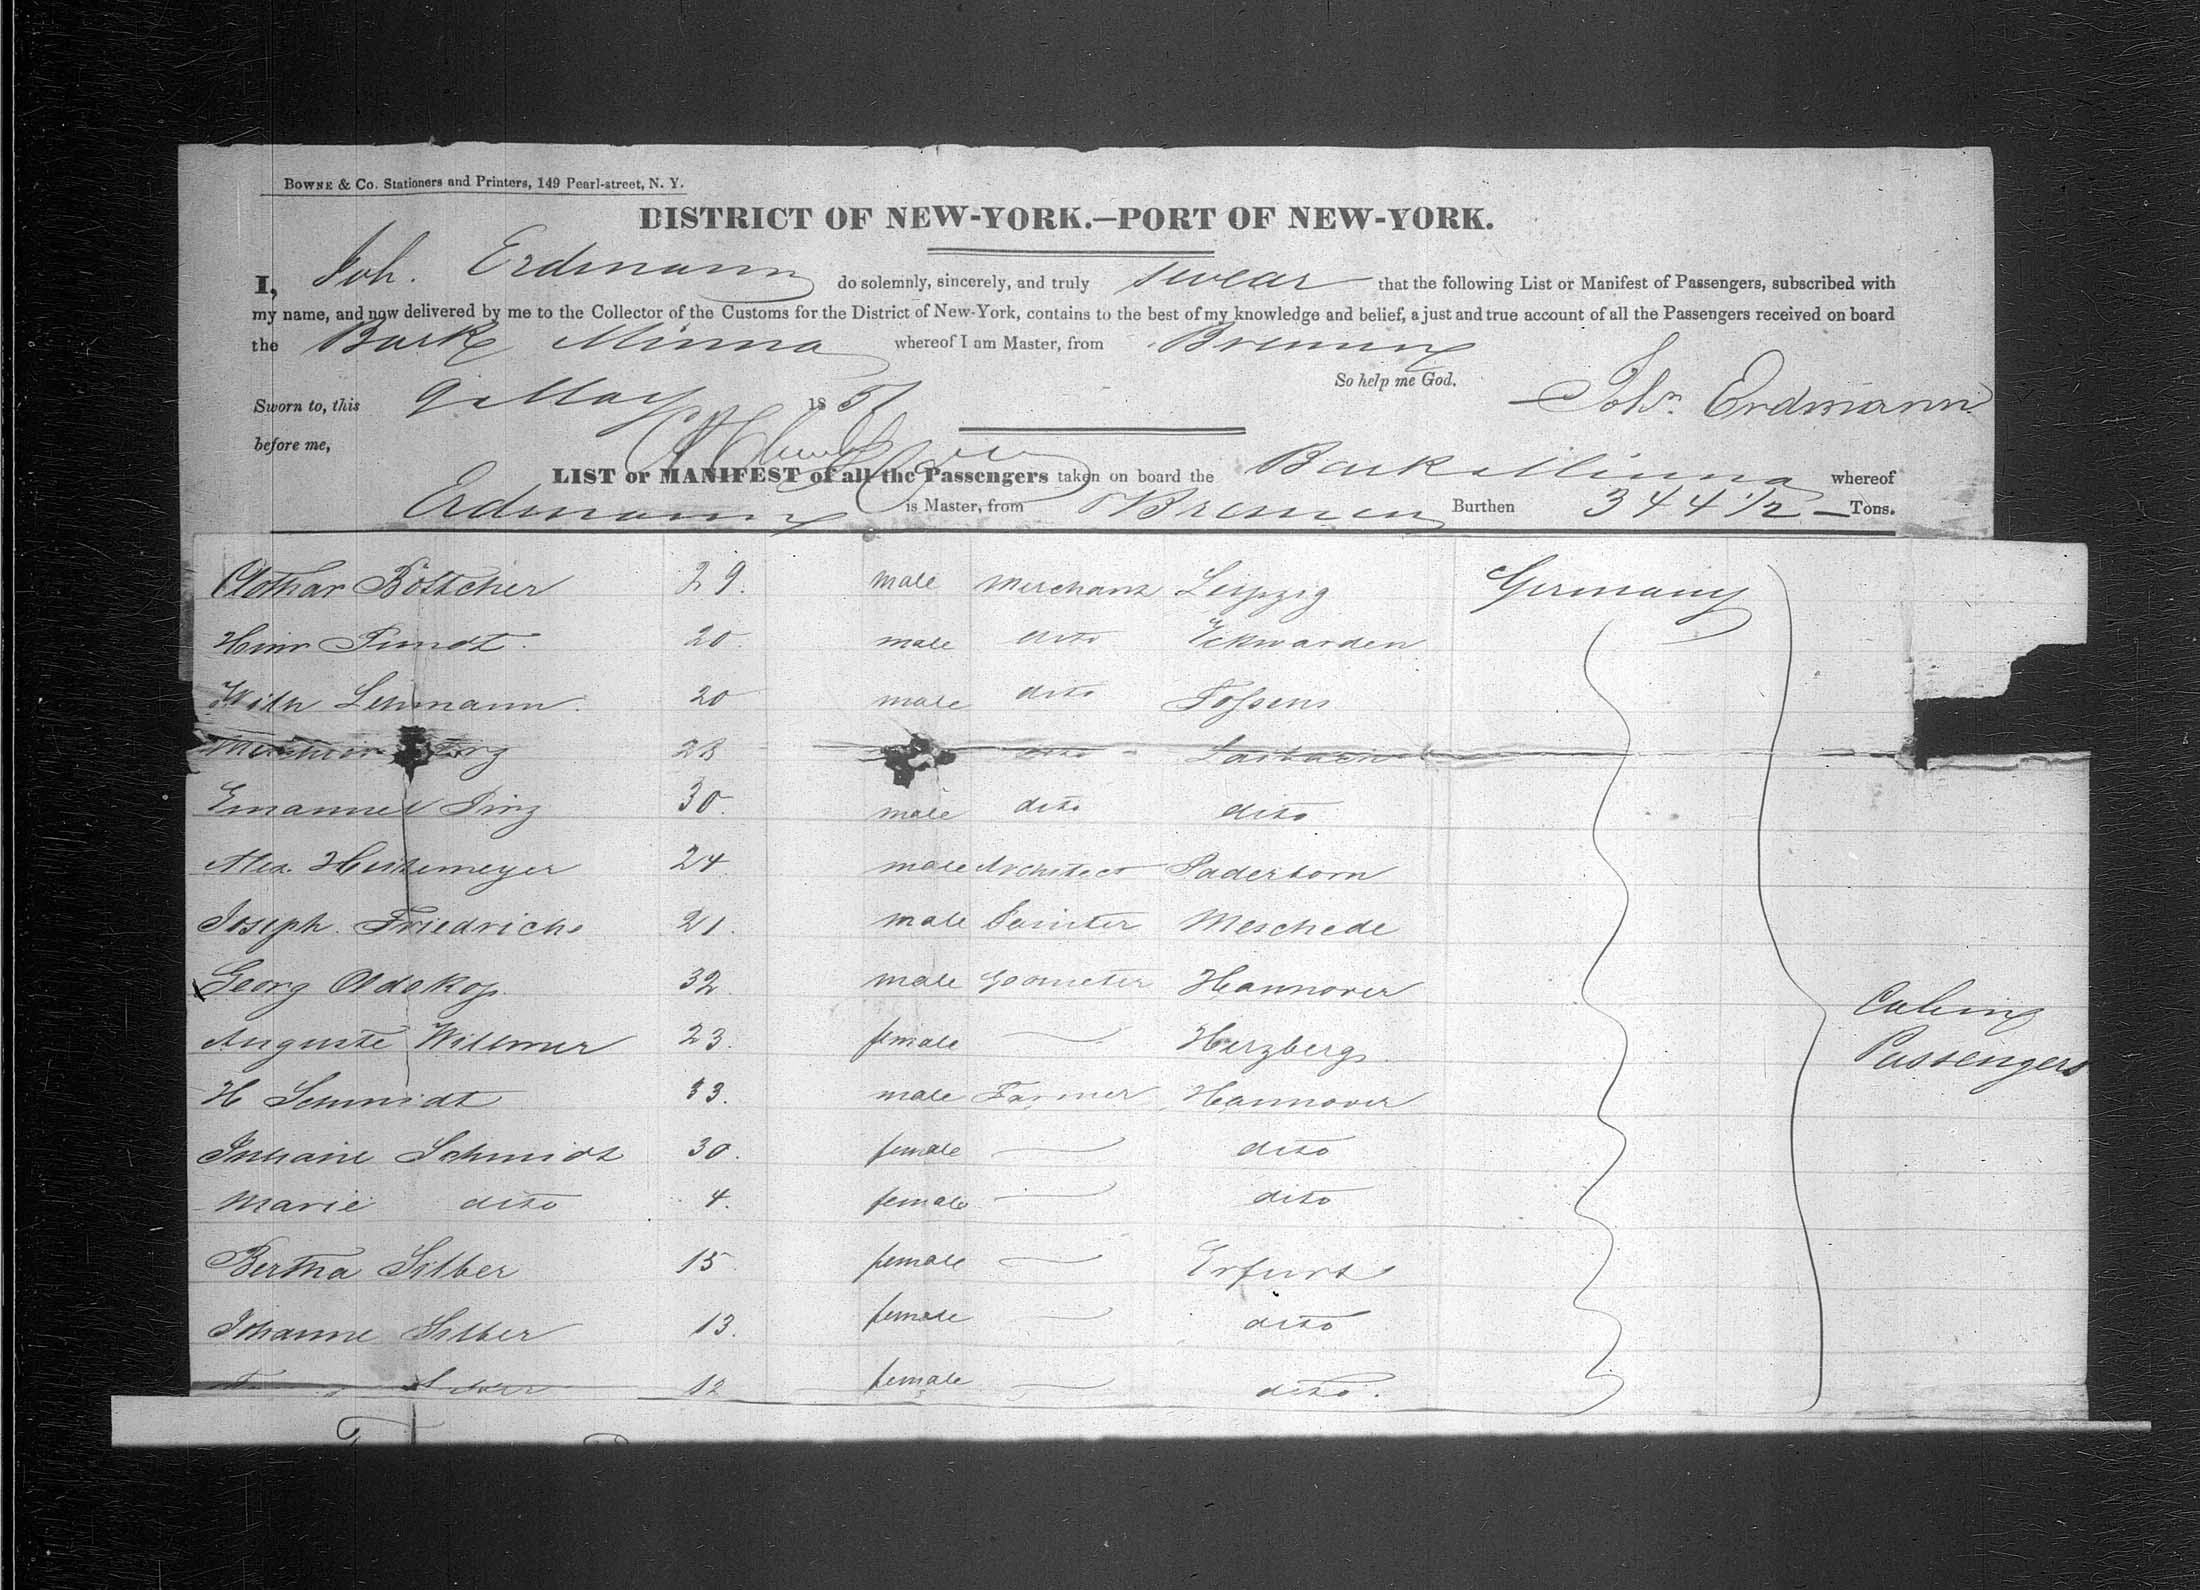 BOWNE & CO. Stationers and Printers, 149 Pearl-street, N. Y.
DISTRICT OF NEW-YORK.—PORT OF NEW-YORK.
I, Joh. Erdmann do solemnly, sincerely, and truly swear that the following List or Manifest of Passengers, subscribed with
my name, and now delivered by me to the Collector of the Customs for the District of New-York, contains to the best of my knowledge and belief, a just and true account of all the Passengers received on board
the Bark Minna whereof I am Master, from Bremen
So help me God.
Sworn to, this 9. May 1851 Joh. Erdmann
before me,
LIST or MANIFEST of all the Passengers taken on board the Bark Minna whereof
Erdmann is Master, from Bremen Burthen 344 1/2 Tons.
Böttcher 29. male Merchant Leipzig Germany
Heinr 20. male dito Eckwarden
Wilh Lehmann. 20 male dito Tossens
28 dito
Emanuel 30. male dito dito
Alex. 24 male Architect Paderborn
Joseph. Friedrichs 21. male Painter Meschede
Georg Oldekop. 32. male Geometer Hannover
Auguste Willmer 23. female — Herzberg
H Schmidt 33. male Farmer Hannover
Juliane Schmidt 30. female — dito
Marie dito 4. female — dito
Bertha Silber 15. female — Erfurt
Johanne Silber 13. female — dito
Silber 12 female — dito.
Cabin
Passengers